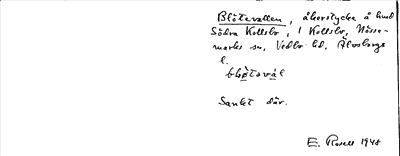 Blötevallen, åkerstycke å hus
Södra Kollsbo, 1 Kollsbo, Nösse-
marks sn, Vedbo hd, Älvsborgs
l.
Sankt där.
E. Rosell 1948